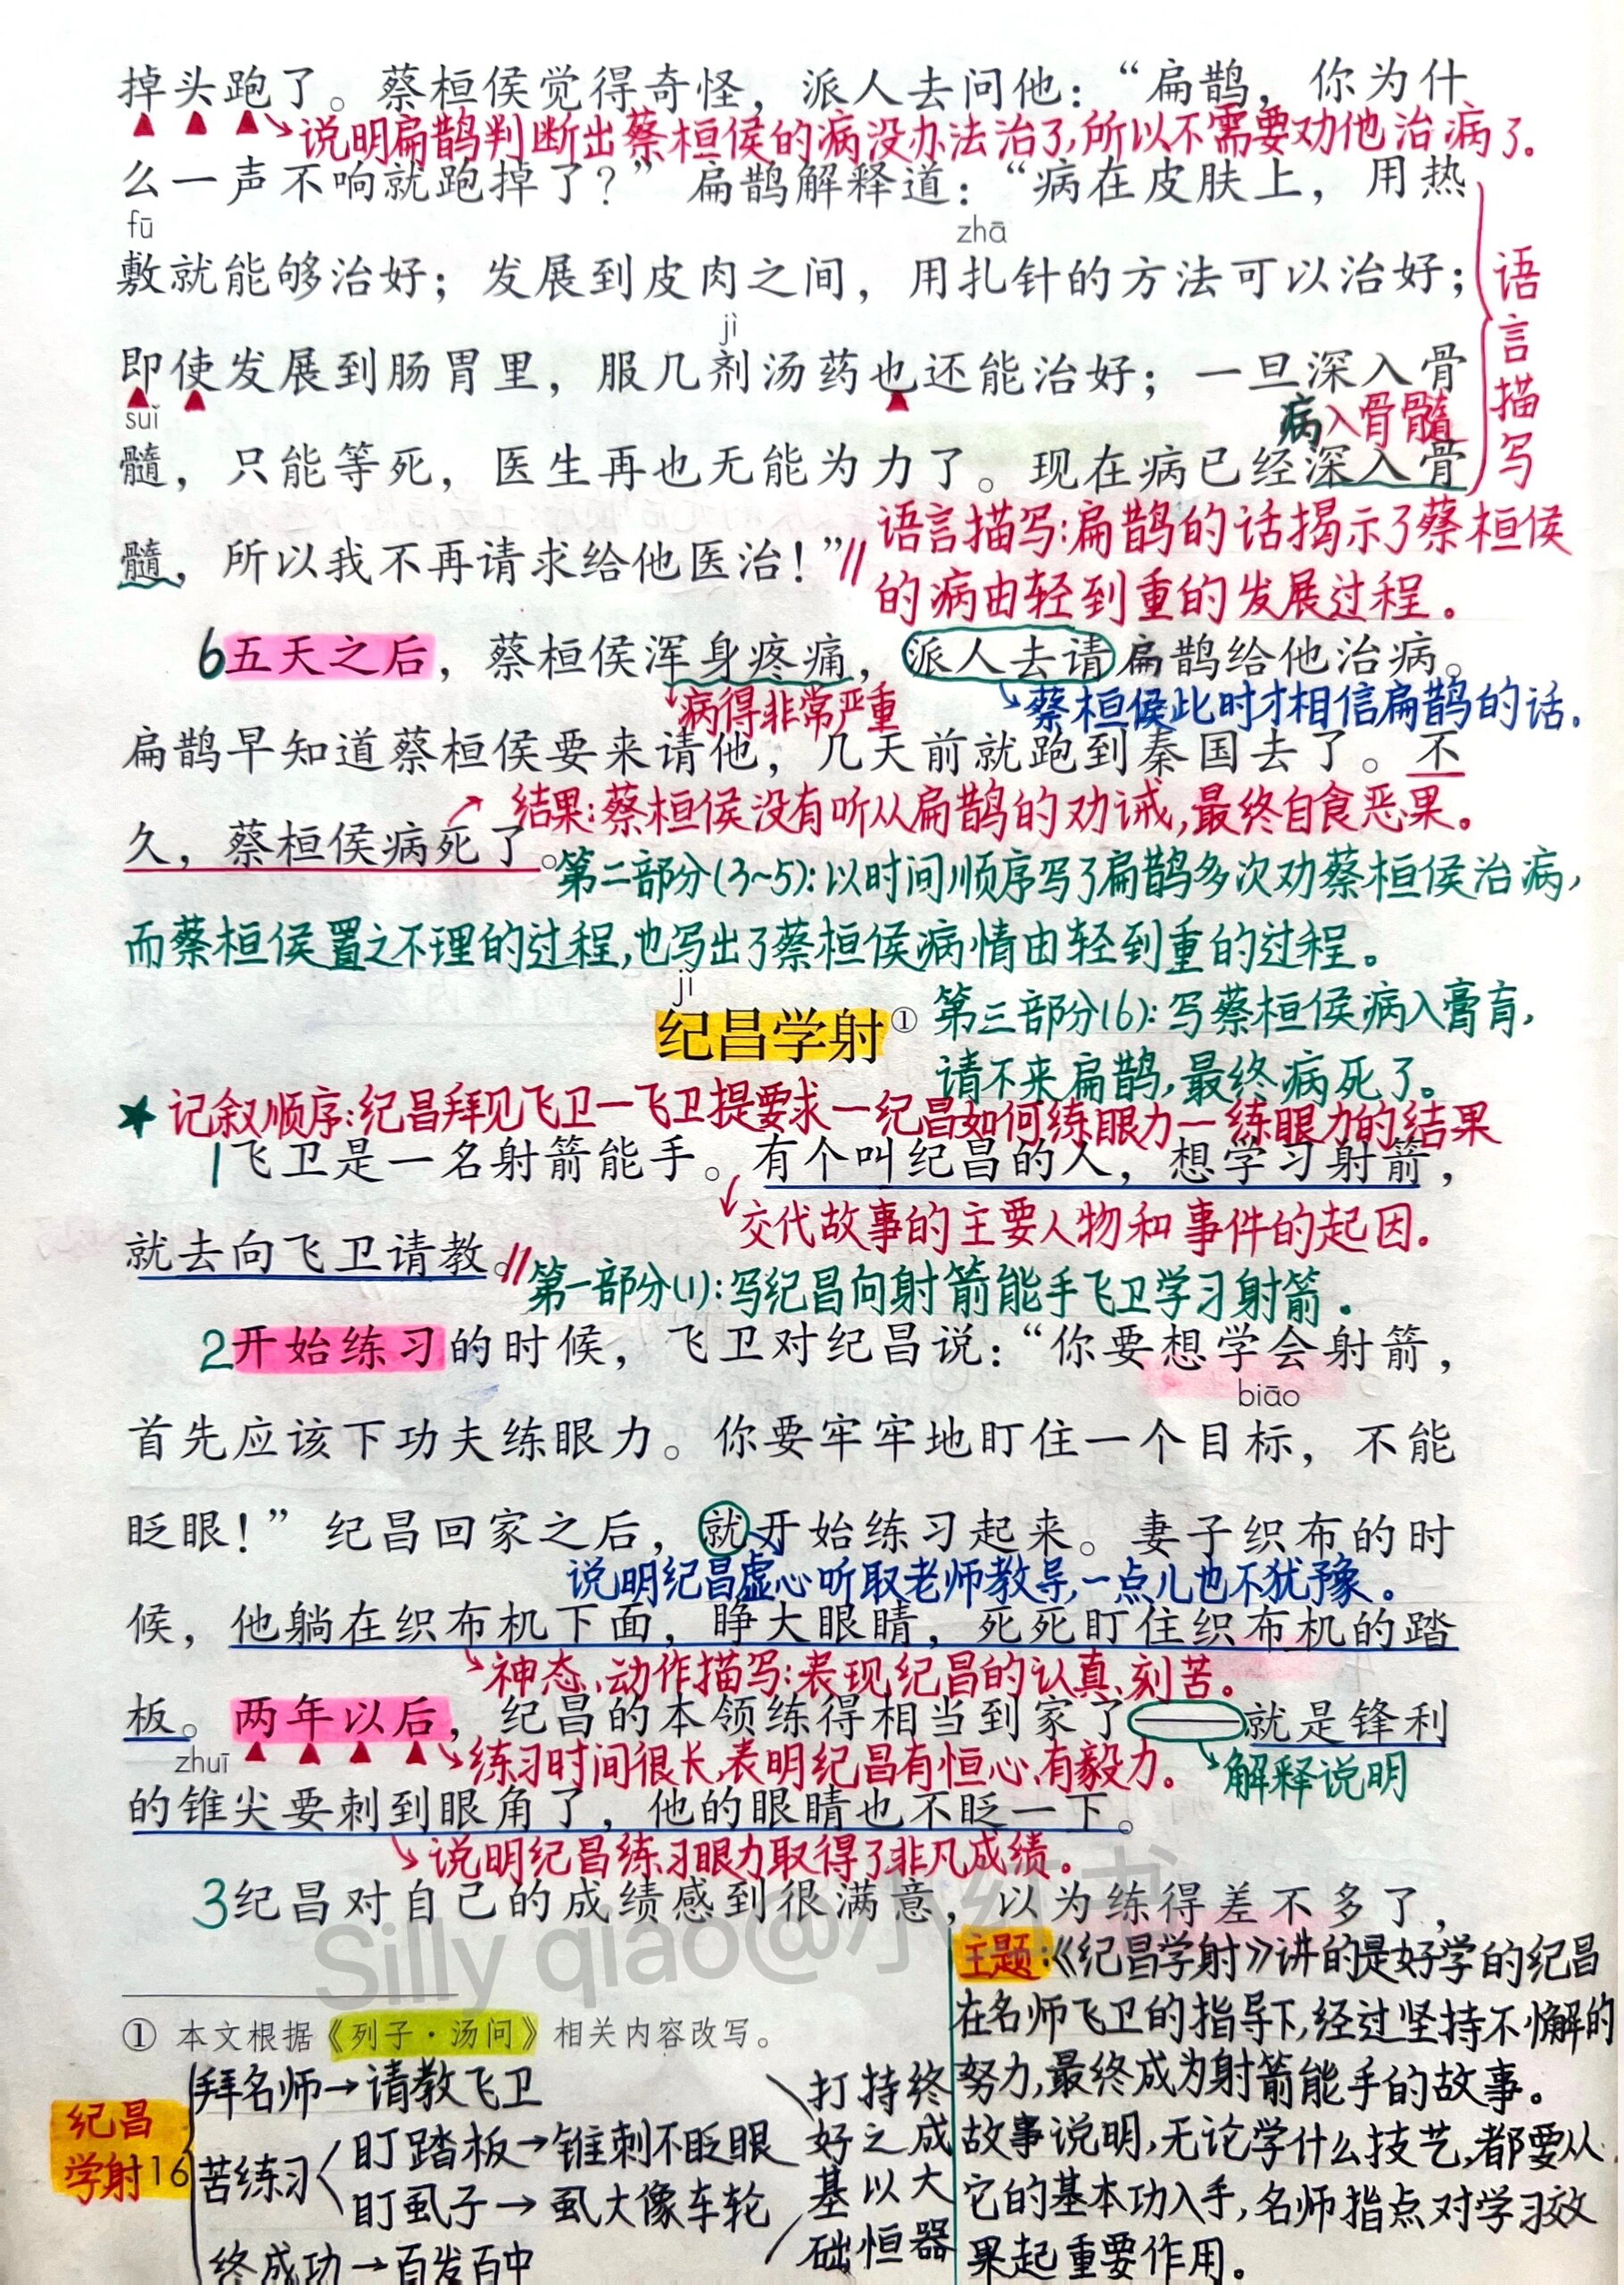 掉头跑了。蔡桓侯觉得奇怪，派人去问他：“扁鹊，你为什
说明扁鹊判断出蔡桓侯的病没办法治了,所以不需要劝他治病了.
么一声不响就跑掉了？”扁鹊解释道：“病在皮肤上，用热
fū zhā
敷就能够治好；发展到皮肉之间，用扎针的方法可以治好；
语言描写
jì
即使发展到肠胃里，服几剂汤药也还能治好；一旦深入骨
病入骨髓
suǐ
髓，只能等死，医生再也无能为力了。现在病已经深入骨
髓，所以我不再请求给他医治！”
语言描写:扁鹊的话揭示了蔡桓侯
的病由轻到重的发展过程。
6五天之后，蔡桓侯浑身疼痛，派人去请扁鹊给他治病。
病得非常严重 蔡桓侯此时才相信扁鹊的话.
扁鹊早知道蔡桓侯要来请他，几天前就跑到秦国去了。不
结果:蔡桓侯没有听从扁鹊的劝诫,最终自食恶果。
久，蔡桓侯病死了。
第二部分(3~5):以时间顺序写了扁鹊多次劝蔡桓侯治病,
而蔡桓侯置之不理的过程,也写出了蔡桓侯病情由轻到重的过程。
jǐ
纪昌学射①
第三部分(6):写蔡桓侯病入膏肓,
请不来扁鹊,最终病死了。
★记叙顺序:纪昌拜见飞卫一飞卫提要求一纪昌如何练眼力一练眼力的结果
1飞卫是一名射箭能手。有个叫纪昌的人，想学习射箭，
交代故事的主要人物和事件的起因.
就去向飞卫请教。
第一部分(1):写纪昌向射箭能手飞卫学习射箭.
2开始练习的时候，飞卫对纪昌说：“你要想学会射箭，
biāo
首先应该下功夫练眼力。你要牢牢地盯住一个目标，不能
眨眼！”纪昌回家之后，就开始练习起来。妻子织布的时
说明纪昌虚心听取老师教导,一点儿也不犹豫。
候，他躺在织布机下面，睁大眼睛，死死盯住织布机的踏
神态、动作描写:表现纪昌的认真、刻苦。
板。两年以后，纪昌的本领练得相当到家了——就是锋利
zhuī
练习时间很长,表明纪昌有恒心、有毅力。 解释说明
的锥尖要刺到眼角了，他的眼睛也不眨一下。
说明纪昌练习眼力取得了非凡成绩。
3纪昌对自己的成绩感到很满意，以为练得差不多了，
Silly qiao@小红书
① 本文根据《列子·汤问》相关内容改写。
纪昌
学射
16
拜名师→请教飞卫
苦练习
盯踏板→锥刺不眨眼
盯虱子→虱大像车轮
终成功→百发百中
打好基础
持之以恒
终成大器
主题:《纪昌学射》讲的是好学的纪昌
在名师飞卫的指导下,经过坚持不懈的
努力,最终成为射箭能手的故事。
故事说明,无论学什么技艺,都要从
它的基本功入手,名师指点对学习效
果起重要作用。